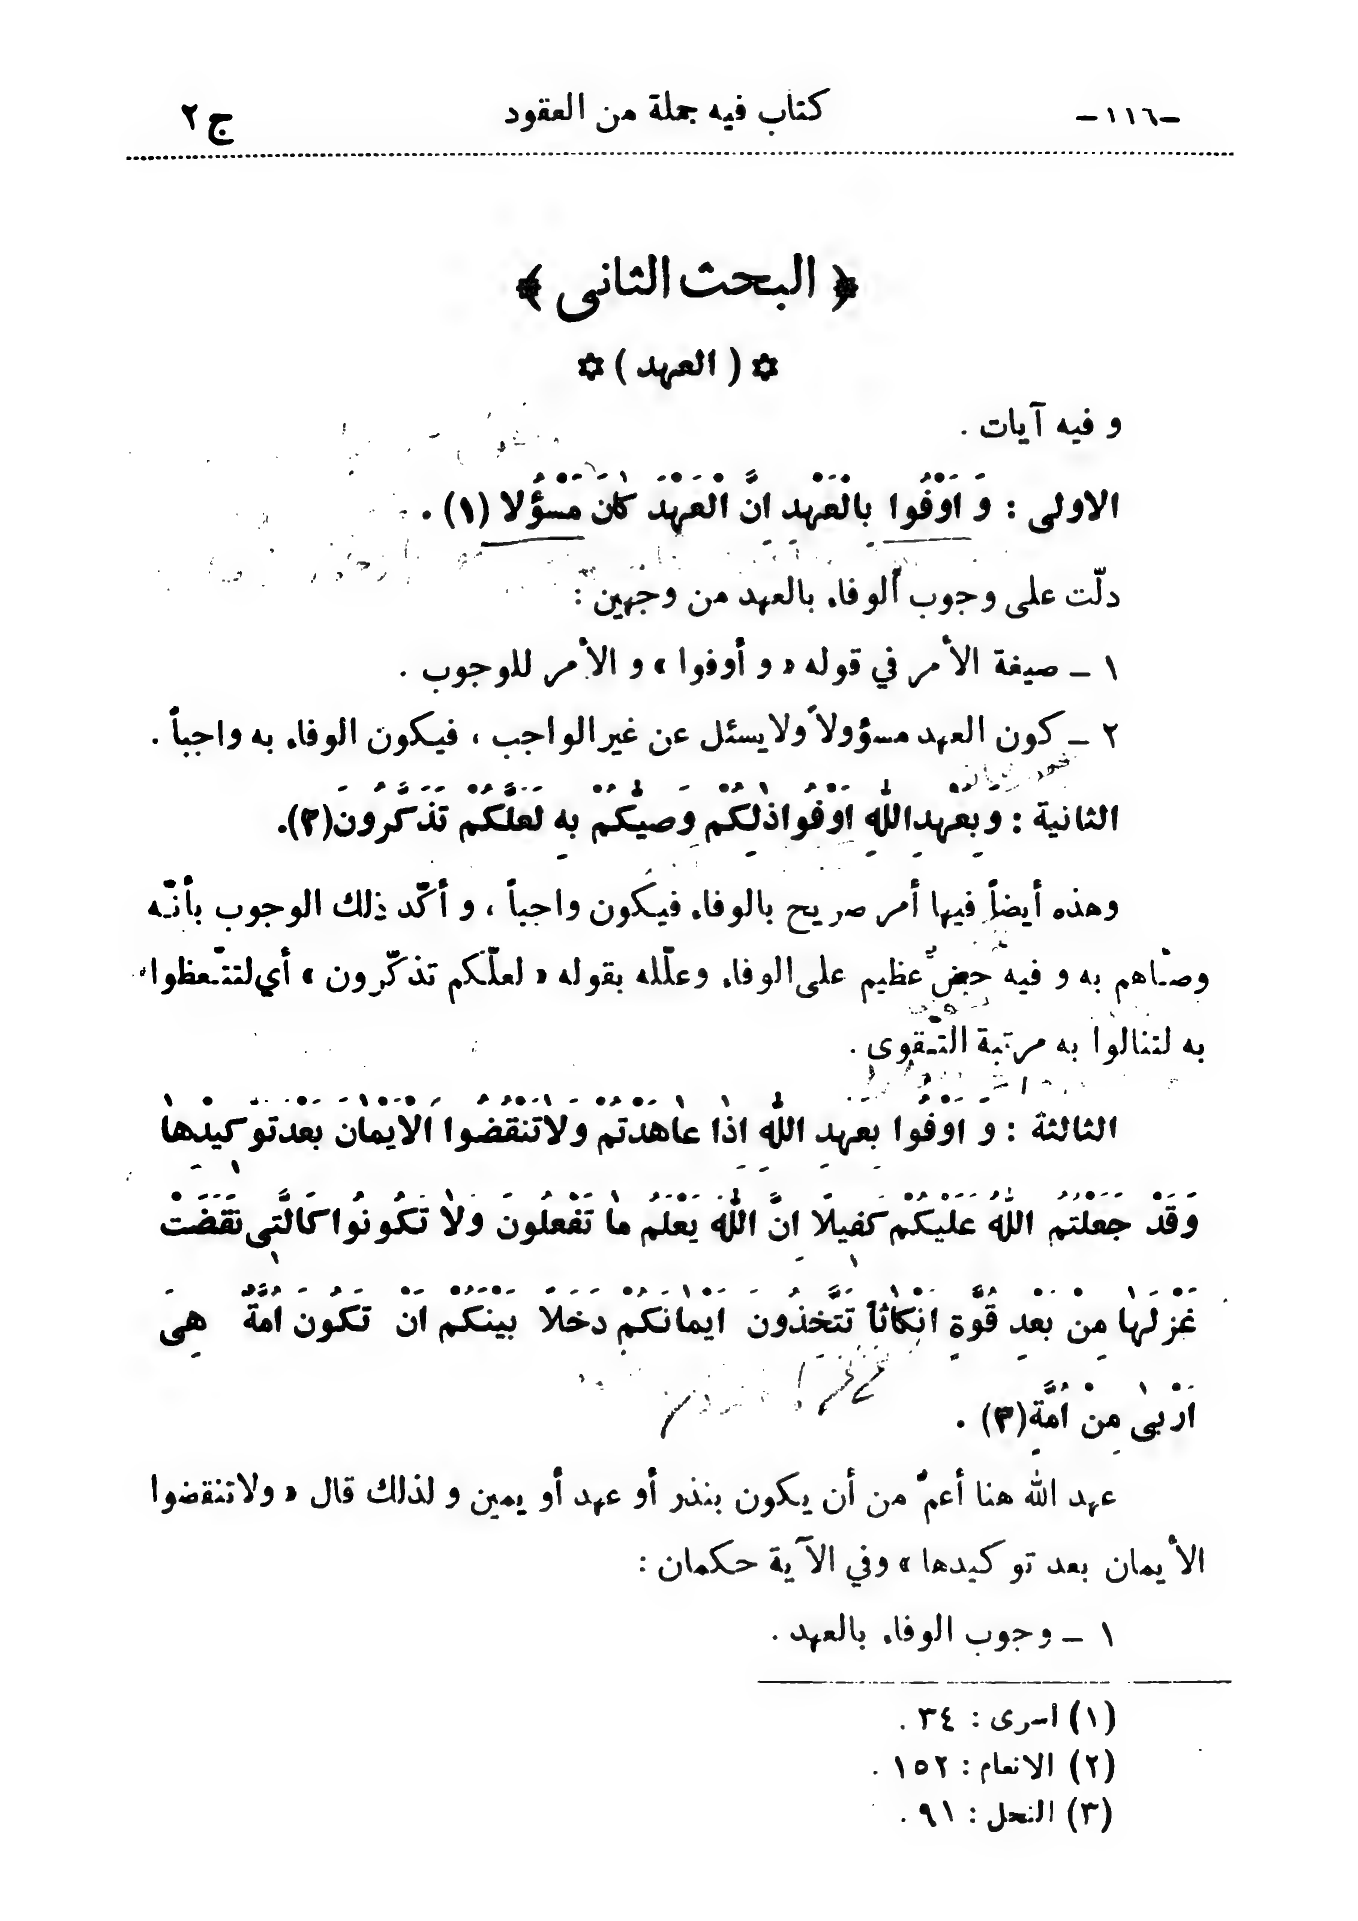 -١١٦- كتاب فيه جملة من العقود ج ٢
﴿ البحث الثانى ﴾
✡ ( العهد ) ✡
و فيه آيات .
الاولى : وَ اَوْفُوا بِالْعَهْدِ اِنَّ الْعَهْدَ كٰانَ مَسْؤُلا (١) .
دلّت على وجوب ألوفاء بالعهد من وجهين :
١ ـ صيغة الأمر في قوله « و أوفوا » و الأمر للوجوب .
٢ ـ كون العهد مسؤولاً ولايسئل عن غيرالواجب ، فيكون الوفاء به واجباً .
الثانية : وَبِعَهْدِاللّٰهِ اَوْفُواذٰلِكُمْ وَصّيٰكُمْ بِهِ لَعَلَّكُمْ تَذَكَّرُونَ(٢).
وهذه أيضاً فيها أمر صريح بالوفاء فيكون واجباً ، و أكّد ذلك الوجوب بأنّه
وصّاهم به و فيه حضّ عظيم على الوفاء وعلّله بقوله « لعلّكم تذكّرون » أي لتتّعظوا
به لتنالوا به مرتبة التّقوى .
الثالثة : وَ اَوْفُوا بِعَهْدِ اللّٰهِ اِذٰا عٰاهَدْتُمْ وَلاٰتَنْقُضُوا الْاَيْمٰانَ بَعْدَتَوْكيدِهٰا
وَقَدْ جَعَلْتُمُ اللّٰهَ عَلَيْكُمْ كَفيلًا اِنَّ اللّٰهَ يَعْلَمُ مٰا تَفْعَلُونَ وَلاٰ تَكُونُوا كَالَّتى نَقَضَتْ
غَزْلَهٰا مِنْ بَعْدِ قُوَّةٍ اَنْكٰاثاً تَتَّخِذُونَ اَيْمٰانَكُمْ دَخَلًا بَيْنَكُمْ اَنْ تَكُونَ اُمَّةٌ هِىَ
اَرْبىٰ مِنْ اُمَّةٍ(٣) .
عهد الله هنا أعمّ من أن يكون بنذر أو عهد أو يمين و لذلك قال « ولاتنقضوا
الأيمان بعد توكيدها » وفي الآية حكمان :
١ ـ وجوب الوفاء بالعهد .
(١) اسرى : ٣٤ .
(٢) الانعام : ١٥٢ .
(٣) النحل : ٩١ .